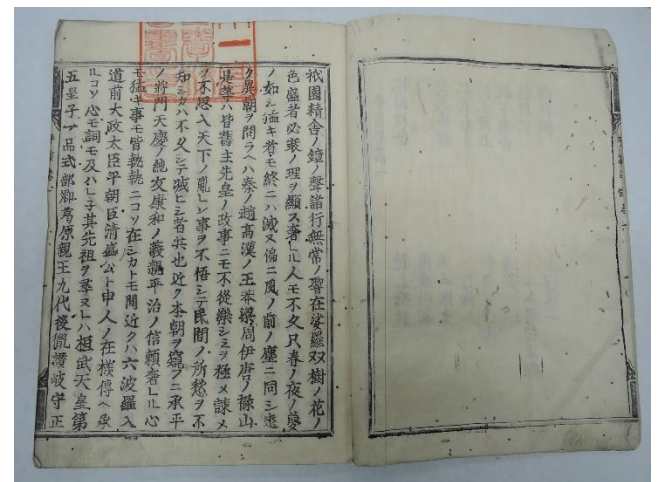 祇園精舎ノ鐘ノ聲諸行無常ノ響在娑羅双樹ノ花ノ
色盛者必衰ノ理ヲ顯ス奢レル人モ不久只春ノ夜ノ夢
ノ如シ猛キ者モ終ニハ滅又偏ニ風ノ前ノ塵ニ同シ遠
ク異朝ヲ問ラヘハ秦ノ趙高漢ノ王莽梁周伊唐ノ祿山
是等ハ皆舊主先皇ノ政事ニモ不從樂シミヲ極メ諫メ
ヲ不思入天下ノ亂レン事ヲ不悟シテ民間ノ所愁ヲ不
知シカハ不久シテ滅ヒシ者共也近ク本朝ヲ窺フニ承平
ノ將門天慶ノ純友康和ノ義親平治ノ信頼奢レル心
モ猛キ事モ皆執執ニコソ在シカトモ間近クハ六波羅入
道前大政太臣平朝臣清盛公ト申人ノ在樣傳ヘ承
ルコソ心モ詞モ及ハレ子其先祖ヲ尋ヌレハ桓武天皇第
五皇子一品式部卿葛原親王九代後胤讃岐守正